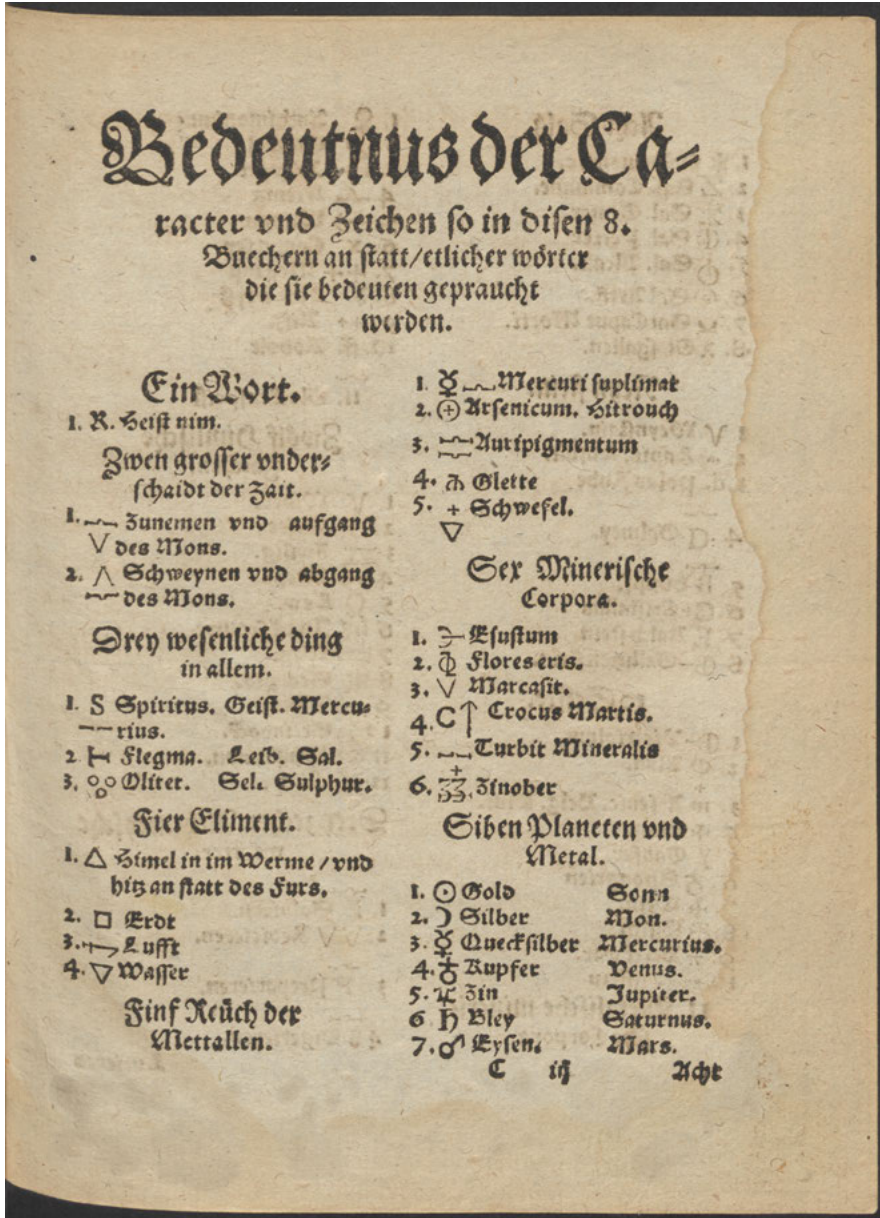 Bedeutnus der Ca⸗
racter vnd Zeichen so in disen 8.
Buechern an statt/etlicher wörter
die sie bedeuten gepraucht
werden.
Ein Wort.
1. R. Heist nim.
Zwen grosser vnder⸗
schaidt der Zait.
1. Zunemen vnd aufgang
des Mons.
2. Schweynen vnd abgang
des Mons.
Drey wesenliche ding
in allem.
1. S Spiritus. Geist. Mercu⸗
rius.
2 Flegma. Leib. Sal.
3. Olitet. Sel. Sulphur.
Fier Eliment.
1. △ Himel in im Werme/vnd
hitz an statt des Furs.
2. □ Erdt
3. Lufft
4. ▽ Wasser
Finf Reüch der
Mettallen.
1 ☿ Mercuri suplimat
2. ⊕ Arsenicum. Hitrouch
3. Auripigmentum
4. Glette
5. + Schwefel.
▽
Sex Minerische
Corpora.
1. Esustum
2. Flores eris.
3. V Marcasit.
4. C↑ Crocus Martis.
5. Turbit Mineralis
6. Zinober
Siben Planeten vnd
Metal.
1. ☉ Gold Sonn
2. ☽ Silber Mon.
3. ☿ Quecksilber Mercurius.
4. ♁ Kupfer Venus.
5. ♃ Zin Jupiter.
6 ♄ Bley Saturnus.
7. ♂ Eysen. Mars.
C iij Acht